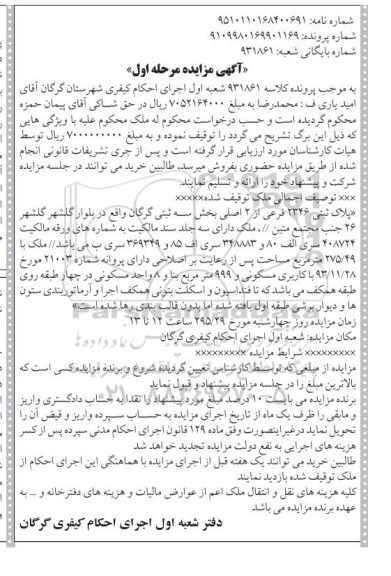 شماره نامه: ۹۵۱۰۱۱۰۱۶۸۴۰۰۶۹۱
شماره پرونده: ۹۱۰۹۹۸۰۱۶۹۹۰۱۱۶۹
شماره بایگانی شعبه: ۹۳۱۸۶۱
«آگهی مزایده مرحله اول»
به موجب پرونده کلاسه ۹۳۱۸۶۱ شعبه اول اجرای احکام کیفری شهرستان گرگان آقای
امید یاری ف : محمدرضا به مبلغ ۷۰۵۲۱۶۴۰۰۰ ریال در حق شــاکی آقای پیمان حمزه
محکوم گردیده است و حسب درخواست محکوم له ملک محکوم علیه با ویژگی هایی
که ذیل این برگ تشریح می گردد را توقیف نموده و به مبلغ ۷۰۰۰۰۰۰۰۰۰ ریال توسط
هیات کارشناسان مورد ارزیابی قرار گرفته است و پس از جری تشریفات قانونی انجام
شده از طریق مزایده حضوری بفروش میرسد، طالبین خرید می توانند در جلسه مزایده
شرکت و پیشنهاد خود را ارائه و تسلیم نمایند.
××× توصیف اجمالی ملک توقیف شده×××××
«پلاک ثبتی ۲۳۴۶ فرعی از ۲ اصلی بخش ســه ثبتی گرگان واقع در بلوار گلشهر گلشهر
۲۶ جنب مجتمع متین //، ملک دارای سه جلد سند مالکیت به شماره های ورقه مالکیت
۴۰۸۷۲۴ سری الف ۸۰ و ۳۴۸۸۸۳ سری اف ۸۵ و ۳۶۹۳۴۹ سری ب می باشد// ملک با
۲۷۵/۴۹ مترمربع مساحت پس از رعایت بر اصلاحی دارای پروانه شماره ۲۱۰۰۳ مورخ
۹۳/۱۱/۲۸ با کاربری مسکونی و ۹۹۹ متر مربع بنا و ۸ واحد مسکونی در چهار طبقه روی
طبقه همکف می باشد که تا فنداسیون و اسکلت بتونی همکف اجرا و آرماتوربندی ستون
ها و دیوار برشی طبقه اول بافته شده اما بدون قالب بندی رها شده است»
زمان مزایده روز چهارشنبه مورخ ۲۹۵/۲۹ ساعت ۱۲ تا ۱۳
مکان مزایده: شعبه اول اجرای احکام کیفری گرگان
××××××××× شرایط مزایده ×××××××××
مزایده از مبلغی که توسـط کارشناس تعیین گردیده شروع و برنده مزایده کسی است که
بالاترین مبلغ را در جلسه مزایده پیشنهاد و قبول نماید
برنده مزایده می بایست ۱۰ درصد مبلغ مورد پیشنهاد را نقدا به حساب دادگستری واریز
و مابقی را ظرف یک ماه از تاریخ اجرای مزایده به حســاب ســپرده واریز و قبض آن را
تحویل نماید در غیر اینصورت وفق ماده ۱۲۹ قانون اجرای احکام مدنی سپرده پس از کسر
هزینه های اجرایی به نفع دولت مزایده تجدید خواهد شد
طالبین خرید می توانند یک هفته قبل از اجرای مزایده با هماهنگی این اجرای احکام از
ملک توقیف شده بازدید نمایند
کلیه هزینه های نقل و انتقال ملک اعم از عوارض مالیات و هزینه های دفترخانه و ... به
عهده برنده مزایده می باشد
دفتر شعبه اول اجرای احکام کیفری گرگان